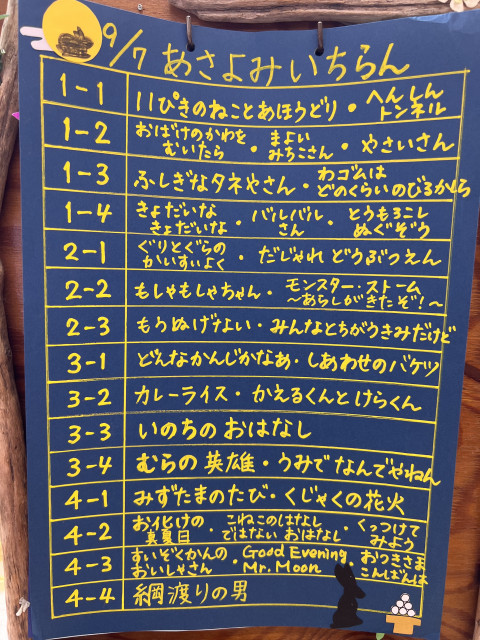 9/7 あさよみいちらん
1-1 11ぴきのねことあほうどり・へんしん
トンネル
1-2 おばけのかわを
むいたら・まよい
みちこさん・やさいさん
1-3 ふしぎなタネやさん・わゴムは
どのくらいのびるかしら
1-4 きょだいな
きょだいなよ・バルバル
さん・とうもろこし
ぬぐぞう
2-1 ぐりとぐらの
かいすいよく・だじゃれ どうぶつえん
2-2 もしゃもしゃちゃん・モンスター・ストーム
～あらしがきたぞ!～
2-3 もうぬげない・みんなとちがうきみだけど
3-1 どんなかんじかなあ・しあわせのバケツ
3-2 カレーライス・かえるくんとけらくん
3-3 いのちのおはなし
3-4 むらの英雄・うみでなんでやねん
4-1 みずたまのたび・くじゃくの花火
4-2 お化けの
真夏日・こねこのはなし
ではない おはなし・くっつけて
みよう
4-3 すいぞくかんの
おいしゃさん・Good Evening
Mr. Moon・おつきさま
こんばんは
4-4 綱渡りの男